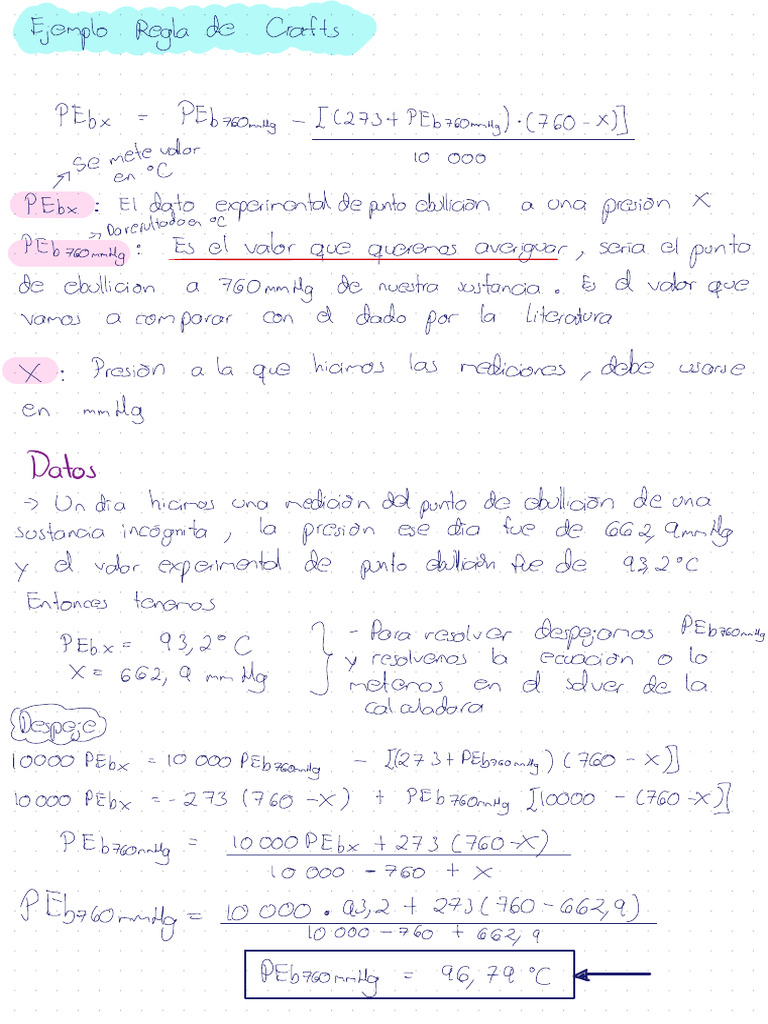 Ejemplo Regla de Crafts
PEbx = PEb760mmHg - [(273 + PEb760mmHg)·(760 - X)]
10 000
Se mete valor
en °C
PEbx : El dato experimental de punto ebullición a una presión X
Da resultado en °C
PEb760mmHg : Es el valor que queremos averiguar, seria el punto
de ebullición a 760mmHg de nuestra sustancia. Es el valor que
vamos a comparar con el dado por la literatura
X : Presión a la que hicimos las mediciones, debe usarse
en mmHg
Datos
→ Un día hicimos una medición del punto de ebullición de una
sustancia incógnita, la presión ese día fue de 662,9mmHg
y el valor experimental de punto ebullición fue de 93,2°C
Entonces tenemos
PEbx = 93,2°C
X = 662,9 mmHg
- Para resolver despejamos PEb760mmHg
y resolvemos la ecuación o lo
metemos en el solver de la
calculadora
Despeje
10000 PEbx = 10 000 PEb760mmHg - [(273 + PEb760mmHg)(760 - X)]
10 000 PEbx = -273 (760 - X) + PEb760mmHg [10000 - (760 - X)]
PEb760mmHg = 10 000 PEbx + 273 (760 - X)
10 000 - 760 + X
PEb760mmHg = 10 000 · 93,2 + 273(760 - 662,9)
10 000 - 760 + 662,9
PEb760mmHg = 96,79 °C